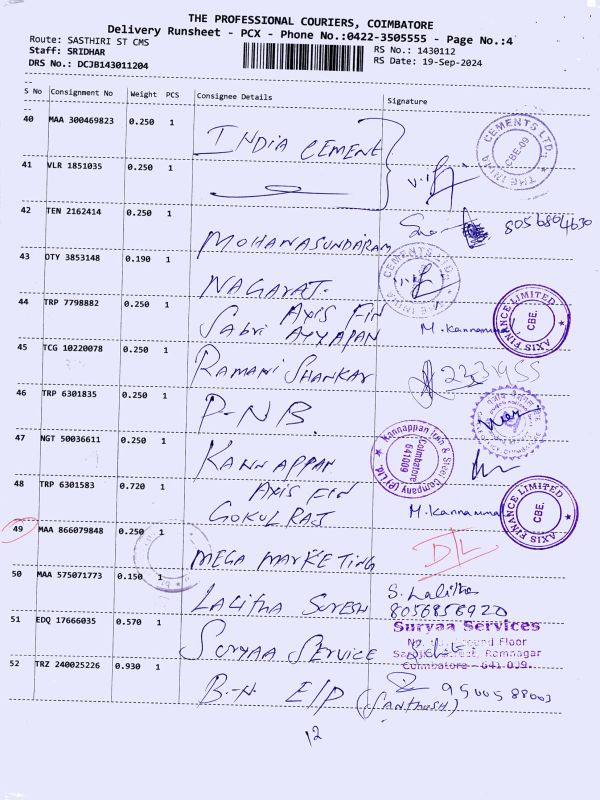 THE PROFESSIONAL COURIERS, COIMBATORE
Delivery Runsheet - PCX - Phone No.:0422-3505555 - Page No.:4
Route: SASTHIRI ST CMS
RS No.: 1430112
Staff: SRIDHAR
RS Date: 19-Sep-2024
DRS No.: DCJB143011204
S No Consignment No Weight PCS Consignee Details Signature
40 MAA 300469823 0.250 1 INDIA CEMENT
THE INDIA CEMENTS LTD. CBE-09
41 VLR 1851035 0.250 1
42 TEN 2162414 0.250 1 MOHANASUNDARAM 8056804630
43 OTY 3853148 0.190 1 NAGARAJ
THE INDIA CEMENTS LTD.
44 TRP 7798882 0.250 1 AXIS FIN
Sabri AYYAPAN M. Kannamma
AXIS FINANCE LIMITED CBE.
45 TCG 10220078 0.250 1 RAMANI SHANKAR 233955
46 TRP 6301835 0.250 1 P-NB.
47 NGT 50036611 0.250 1 KANNAPPAN
Kannappan Iron & Steel Company (P) Ltd. Coimbatore 641009
48 TRP 6301583 0.720 1 AXIS FIN
GOKUL RAJ M. Kannamma
AXIS FINANCE LIMITED CBE.
49 MAA 866079848 0.250 1 MEGA MARKETING D/L
50 MAA 575071773 0.150 1 LALITHA SURESH S. Lalitha
8056856920
51 EDQ 17666035 0.570 1 SURYAA SERVICE
Suryaa Services
Ground Floor
Street, Ramnagar
Coimbatore - 641 009.
52 TRZ 240025226 0.930 1 B.N. E/P (SANTHOSH) 9500588003
12